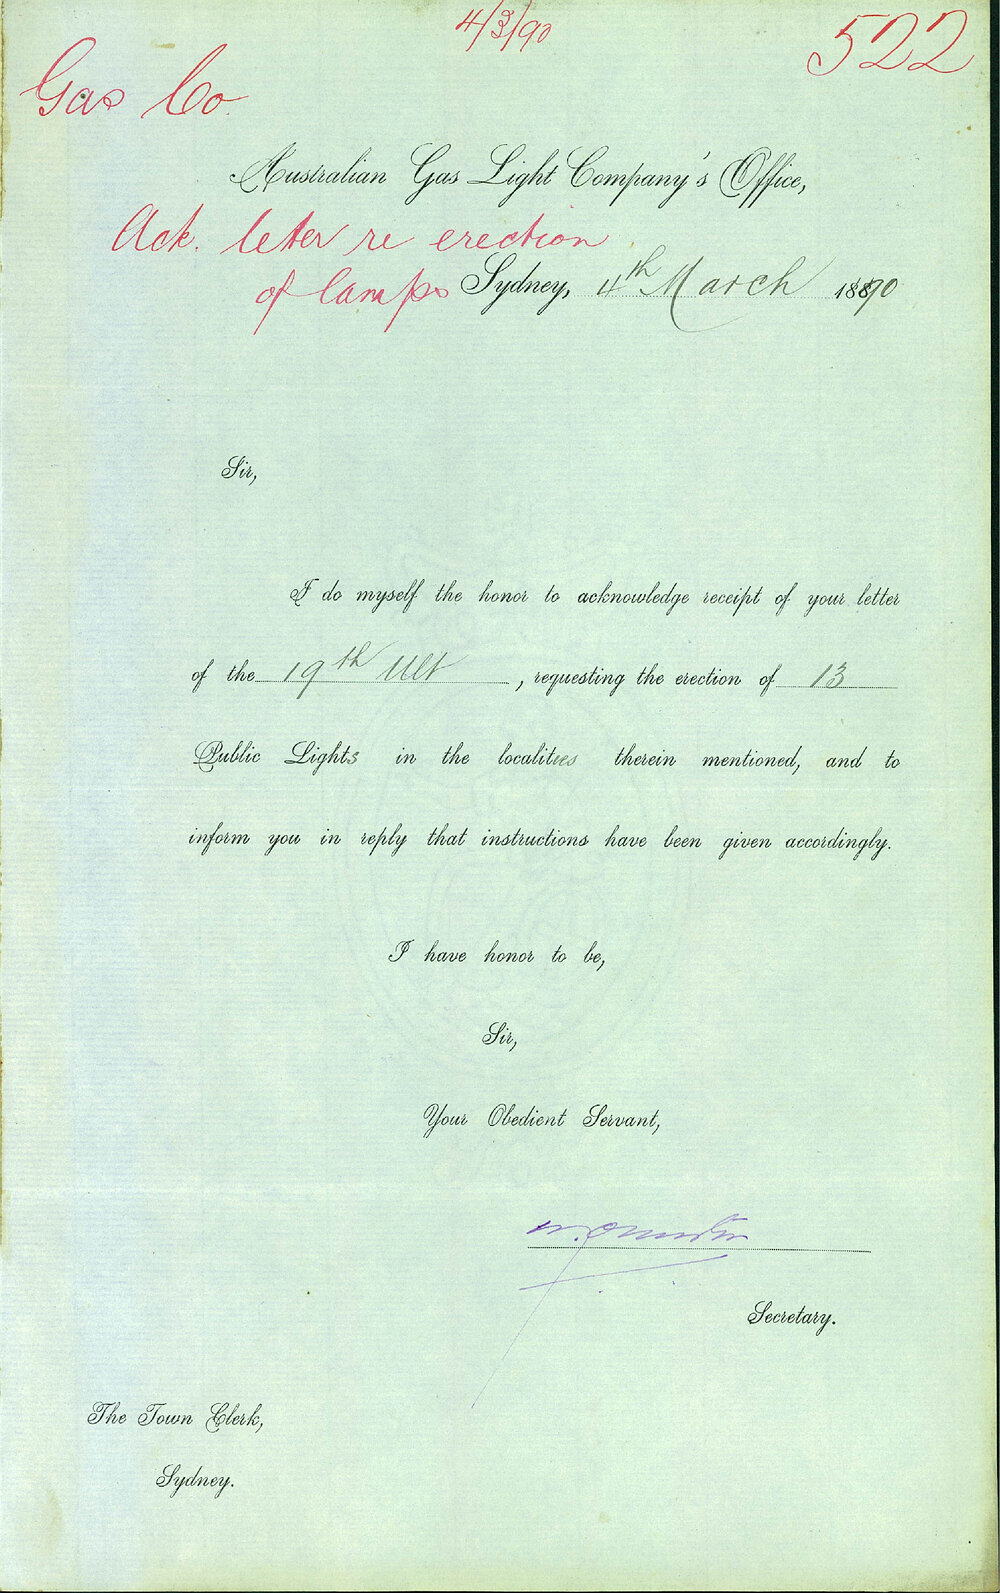 4/3/90
522
Gas Co.
Australian Gas Light Company's Office,
Ack. letter re erection
of lamps
Sydney, 4th March 1890
Sir,
I do myself the honor to acknowledge receipt of your letter
of the 19th Ult, requesting the erection of 13
Public Lights in the localities therein mentioned, and to
inform you in reply that instructions have been given accordingly.
I have honor to be,
Sir,
Your Obedient Servant,
Secretary.
The Town Clerk,
Sydney.